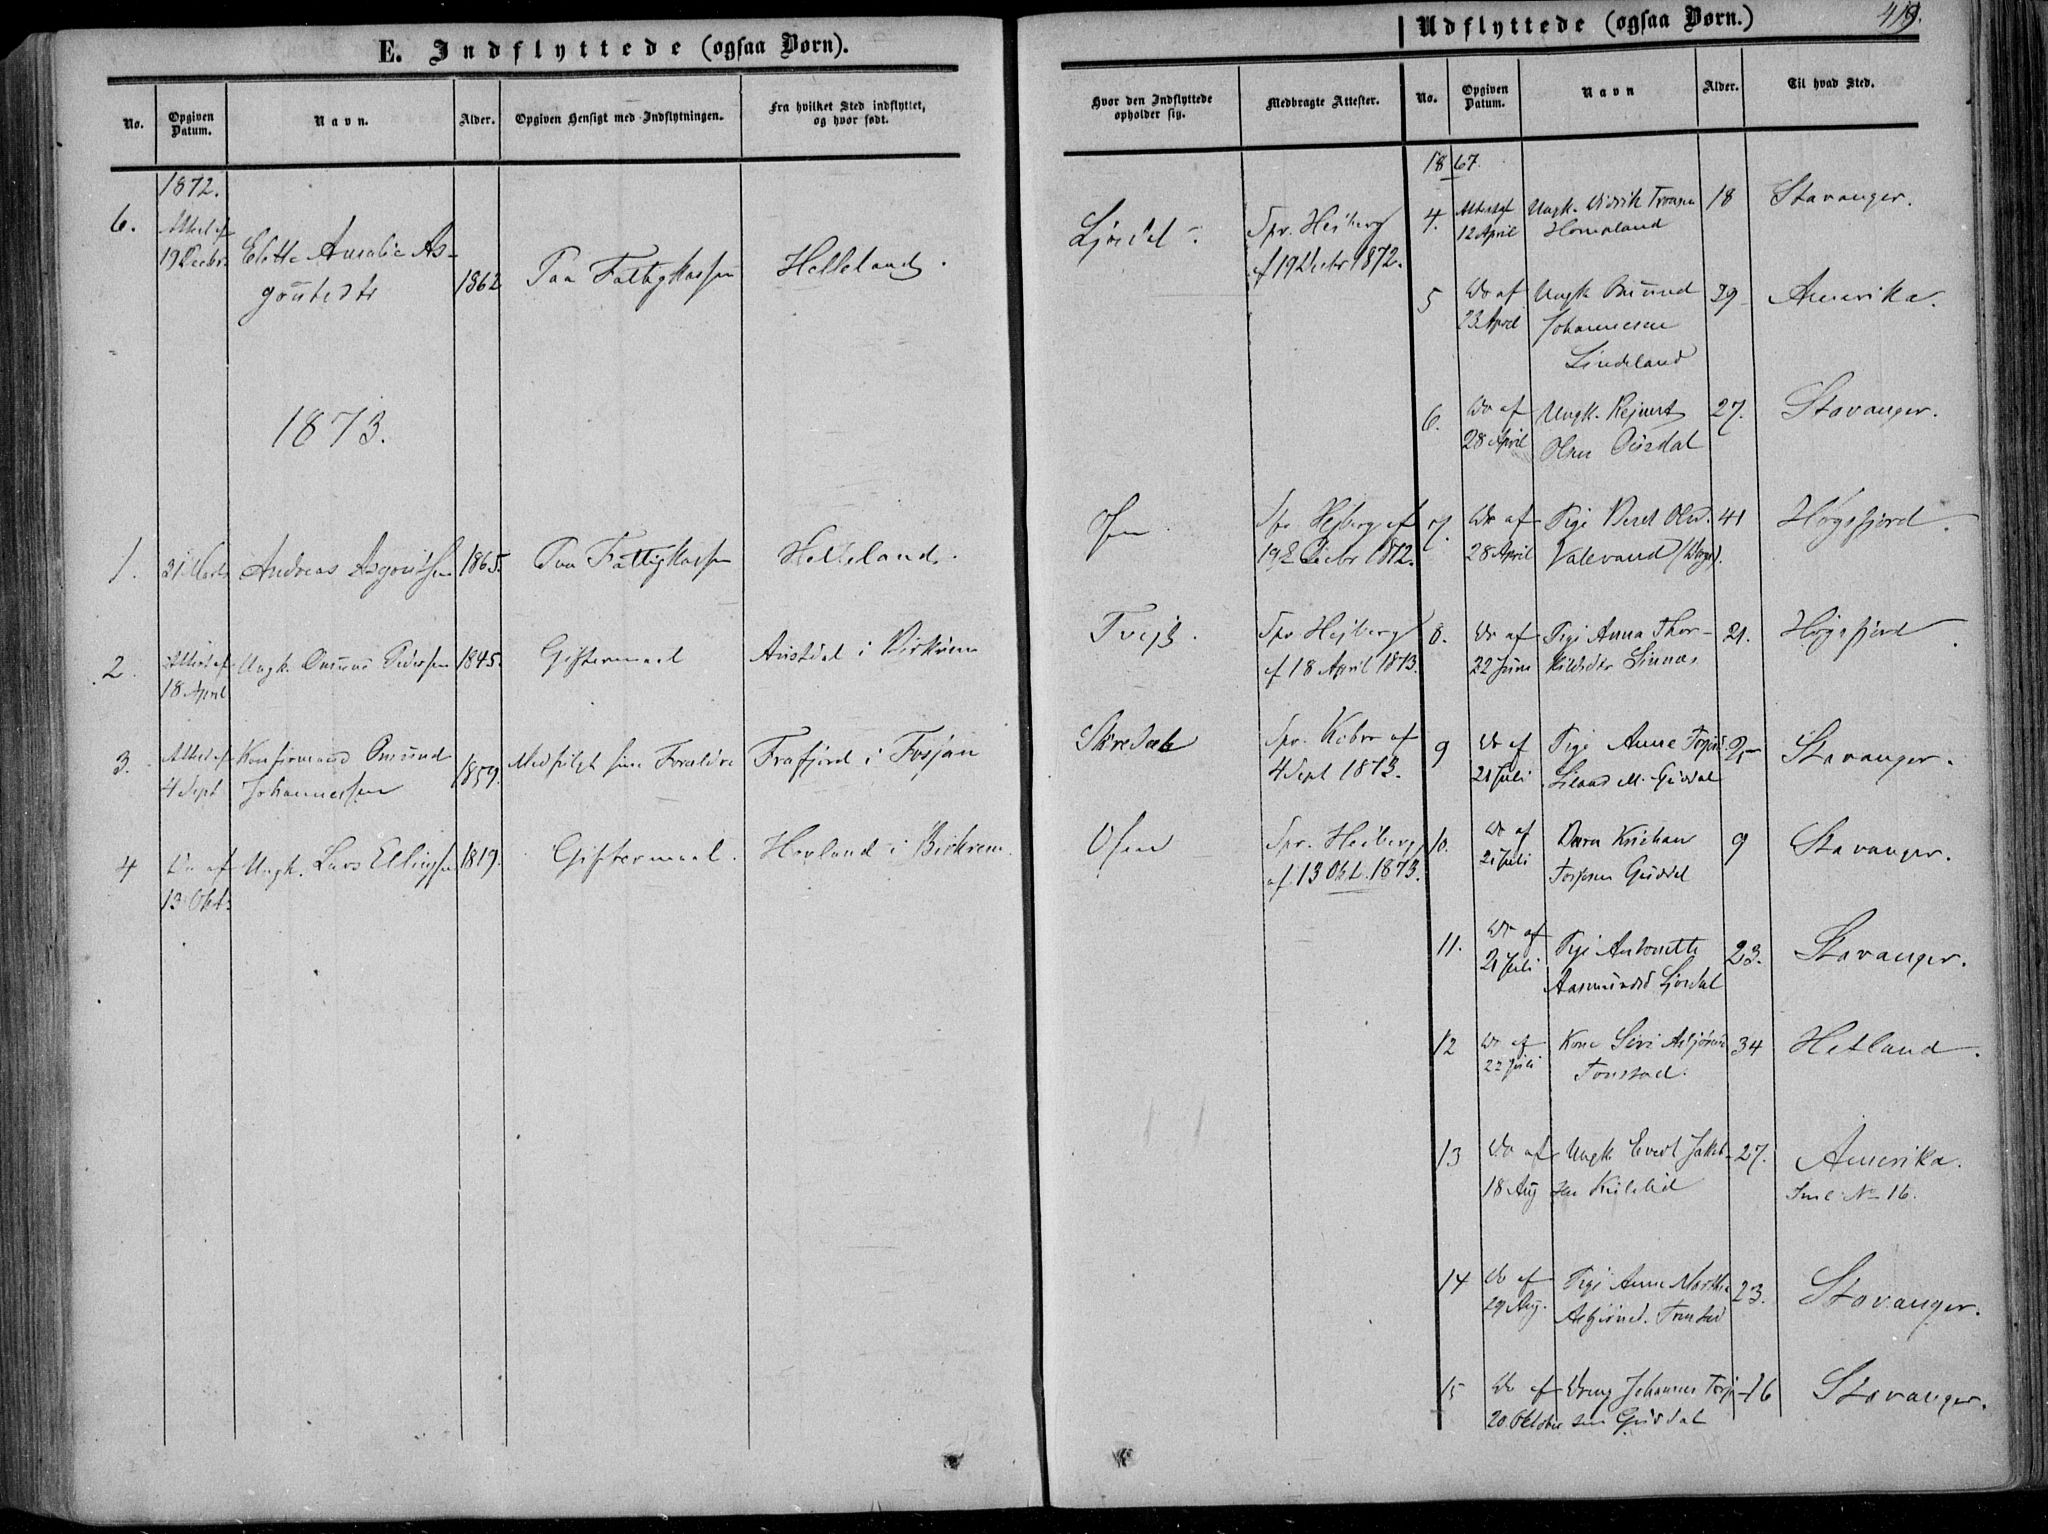 E. Indflyttede (ogsaa Børn).
No.
Opgiven Datum.
Navn.
Alder.
Opgiven Hensigt med Indflytningen.
Fra hvilket Sted indflyttet, og hvor født.
1872.
6.
Attest af
19 Decbr.
Elette Amalie As-
goutsdtr
1862
Paa Fattigkassen
Helleland.
1873.
1.
21 Marts
Andreas Asgoutsen
1865.
Paa Fattigkassen
Helleland.
2.
Attest af
18 April
Ungk. Omund Pedersen
1845.
Giftermaal
Austdal i Birkrem
3.
Attest af
4 Sept
Konfirmand Omund
Johannessen
1859.
Medfulgt sine Forældre
Frafjord i Fosjan
4
Do af
13 Okt.
Ungk. Lars Ellingsen
1819.
Giftermaal.
Hovland i Birkrem.
Hvor den Indflyttede opholder sig.
Medbragte Attester.
Ljosdal.
Spr. Heiberg
af 19 Decbr 1872.
Osen
Spr Hejberg af
19 Decbr 1872.
Tvejt.
Spr Hejberg
af 18 April 1873.
Skredal
Spr. Kobro af
4 Sept 1873.
Osen
Spr. Heiberg
af 13 Okt. 1873.
Udflyttede (ogsaa Børn.)
419.
No.
Opgiven Datum.
Navn
Alder.
Til hvad Sted.
1867.
4.
Attest af
12 April
Ungk. Didrik Tronsen
Homeland
18
Stavanger.
5
Do af
23 April
Ungk Omund
Johannesen
Lindeland
29
Amerika.
6.
Do af
28 April
Ungk. Rejnert
Olsen Ousdal
27.
Stavanger.
7.
Do af
28 April
Pige Beret Olsd.
Valevand
41
Høgsfjord.
8.
Do af
22 Juni
Pige Anna Thor-
kildsdtr Sinnes
21.
Høgsfjord.
9
Do af
21 Juli
Pige Anne Torjusd.
25
Stavanger.
10.
Do af
21 Juli
Barn Kristian
Torjusen Gusdal
9
Stavanger.
11.
Do af
21 Juli
Pige Antonette
Aasmundsd Ljosdal
23.
Stavanger.
12
Do af
22 Juli
Kone Siri Asbjørnsd
Tonstad.
34
Hetland.
13
Do af
18 Aug
Ungk. Evert Jakob-
sen Kvilelid
27.
Amerika.
Sml. No 16.
14
Do af
29 Aug.
Pige Anne Marthe
Asbjørnsd. Tonstad
23.
Stavanger.
15
Do af
20 Oktober
Dreng Johannes Torju-
sen Gusdal
16
Stavanger.